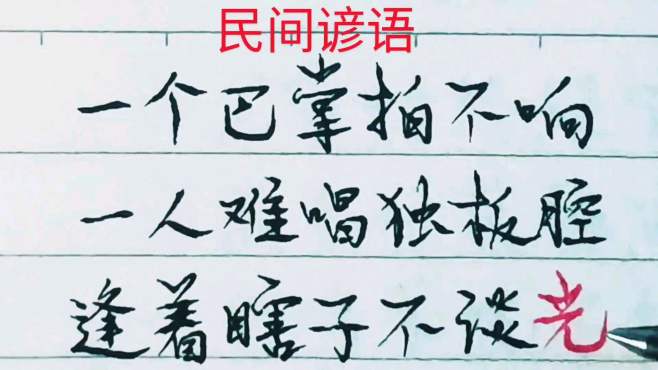 民间谚语
一个巴掌拍不响
一人难唱独板腔
逢着瞎子不谈光